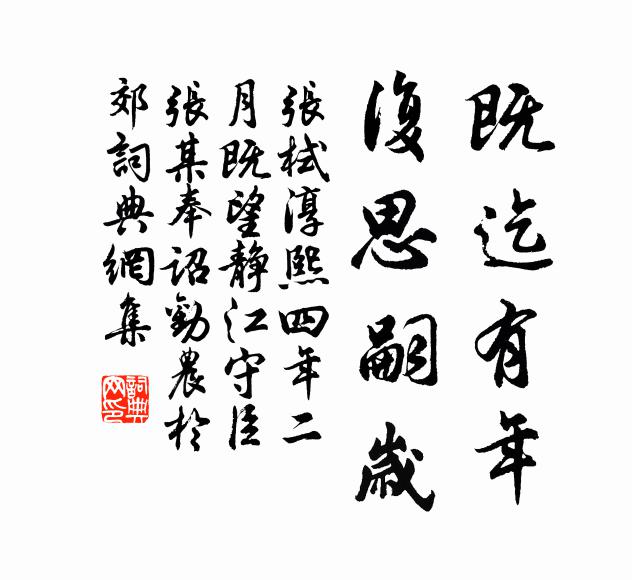 既迄有年
復思嗣歲
張栻淳熙四年二
月既望靜江守臣
張某奉詔勸農於
郊詞典網集
詞典
网印